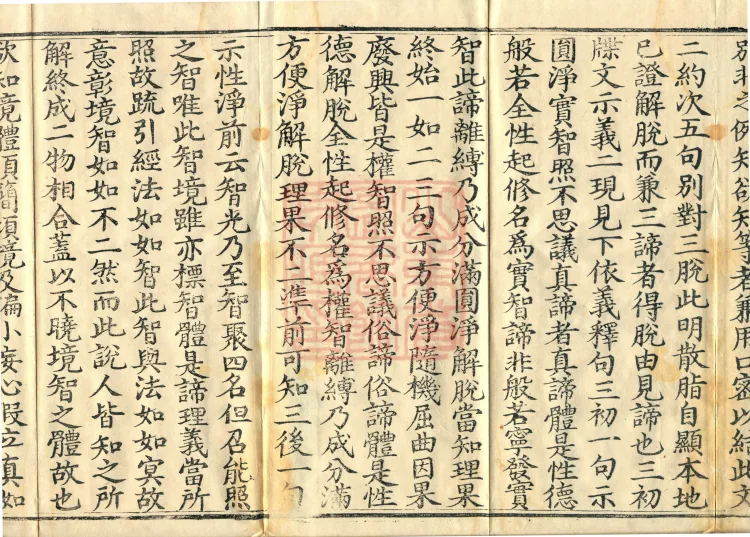 別非之例知欲知等者兼用口密以結此文
二約次五句別對三脫此明散脂自顯本地
已證解脫而兼三諦者得脫由見諦也三初
牒文示義二現見下依義釋句三初一句示
圓淨實智照不思議真諦者真諦體是性德
般若全性起修名為實智諦非般若寧發實
智此諦離縛乃成分滿圓淨解脫當知理果
終始一如二二句示方便淨隨機屈曲因果
廢興皆是權智照不思議俗諦俗諦體是性
德解脫全性起修名為權智離縛乃成分滿
方便淨解脫理果不二準前可知三後一句
示性淨前云智光乃至智聚四名但召能照
之智唯此智境雖亦標智體是諦理義當所
照故疏引經法如如智此智與法如如冥故
意彰境智如如不二然而此說人皆知之所
解終成二物相合蓋以不曉境智之體故也
欲知境體須簡須境及徧小妄心假立真如